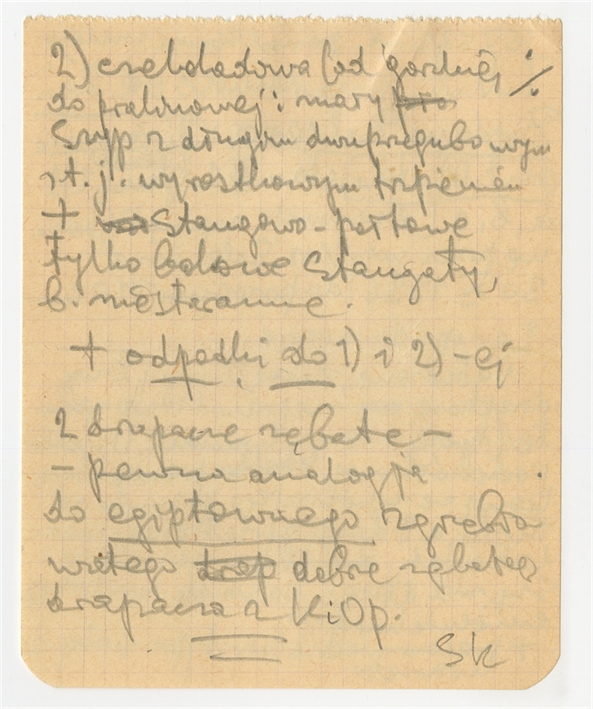 2) czekoladowa (od gorzkiej %
do pralinowej i mały
Szyp z długim dwuprzegubowym
t. j. wyrostkowym trzpieniem
+ Stangowo-portowe
tylko bokowe Stangaty,
b. niestaranne.
+ odpadki do 1) i 2)-ej
2 drapacze zębate –
– pewna analogja
do egiptownego zgrzebła
wziętego drap dobrze zębatego
drapacza z KiOp.
SK